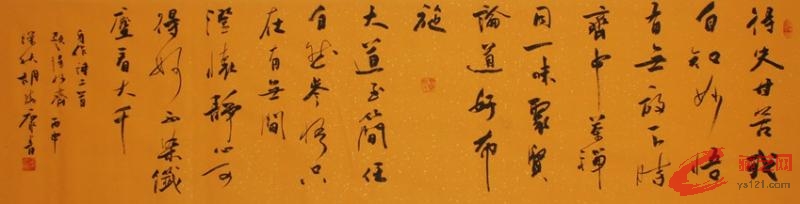 得失甘苦我
自知妙悟
無放下時
齋中茶禪
同一味聚賢
論道好布
施
大道至簡任
自然參悟只
在有無間
澄懷靜心可
得好不染纖
塵看大千
自作詩二首
丙申
深秋胡海
ys121.com